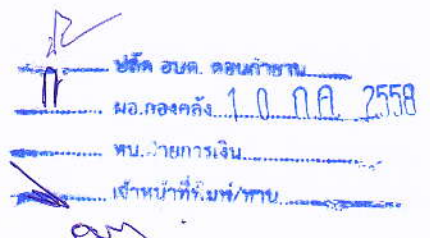 ปลัด อบต. ดอนกำยาน
ผอ.กองคลัง 10 ก.ค. 2558
หน.ฝ่ายการเงิน
เจ้าหน้าที่พิมพ์/ทาน